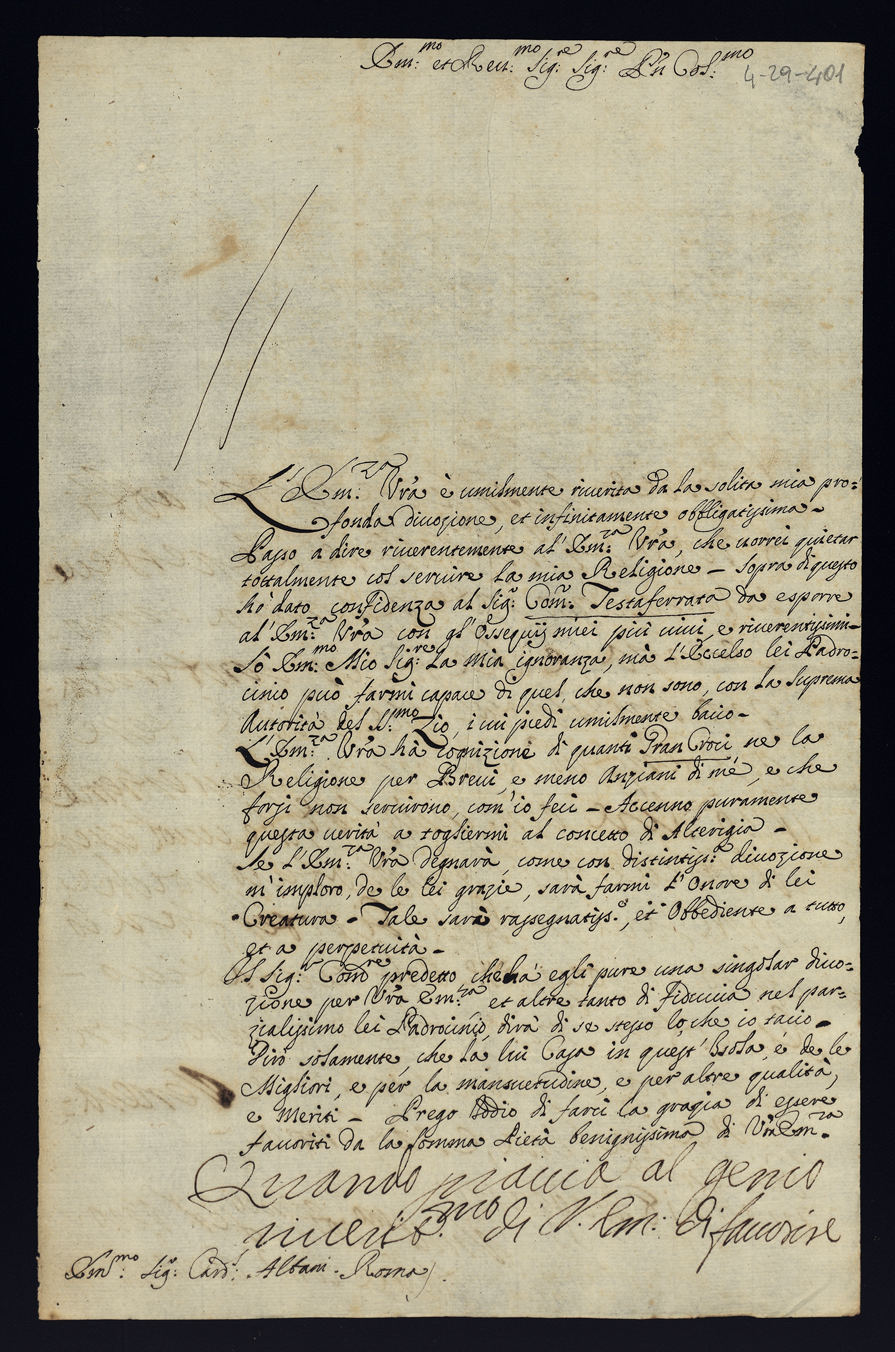 Em:mo et Reu:mo Sig:re Sig:re P'n Col:mo
4-29-401
L'Em:za Vr̃a è umilmente riuerita da la solita mia pro=
fonda diuozione, et infinitamente obbligatissima -
Passo a dire riuerentemente al'Em:za Vr̃a, che uorrei quietar
tottalmente col seruire la mia Religione - Sopra di questo
hò dato confidenza al Sig:r Com:r Testaferrata da esporre
al'Em:za Vr̃a con gl'Ossequij miei più uiui, e riuerentissimi -
Sò Em:mo Mio Sig:re la mia ignoranza, mà l'Eccelso lei Padro=
cinio può farmi capace di quel, che non sono, con la Suprema
Autorità del S:mo Zio, i cui piedi umilmente bacio -
L'Em:za Vr̃a hà cognizione di quanti Gran Croci ne la
Religione per Breui, e meno Anziani di mé, e che
forsi non seruirono, com'io feci - Accenno puramente
questa uerità a togliermi al concetto di Alterigia -
Se l'Em:za Vr̃a degnarà, come con distintiss:a diuozione
m'imploro, de le lei grazie, sarà farmi l'Onore di lei
Creatura - Tale sarò rassegnatiss:o, et Obbediente a tutto,
et a perpetuità -
Il Sig:r Comd:re predetto che hà egli pure una singolar diuo=
zione per Vr̃a Em:za et altre tanto di Fiduccia nel par=
zialissimo lei Padrocinio, dirà di se stesso lo, che io taccio -
Dirò solamente, che la lui Casa in quest'Isola, è de le
Migliori, e per la mansuetudine, e per altre qualità,
e Meriti - Prego Iddio di farci la grazia di essere
fauoriti da la somma Pietà benignissima di Vr̃a Em:za -
Quando piaccia al genio
di V. Em: di fauorire
Em:mo Sig:r Card:l Albani - Roma).